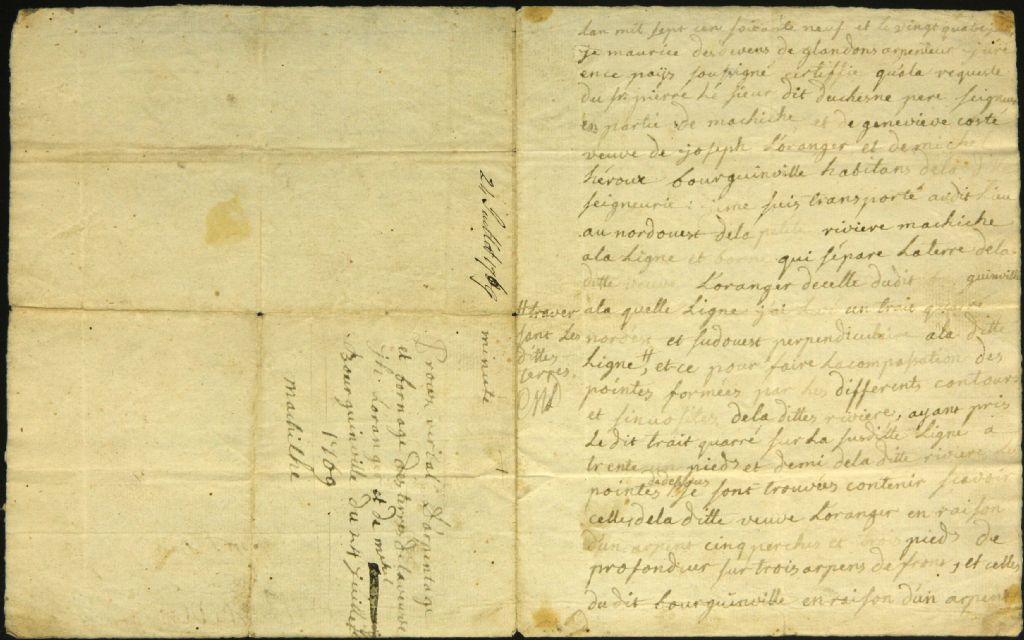 24 Juillet 1769
minute
Procez verbal D'arpentage
et bornage des terres de la veuve
jh Loranger et de michl
Bourguinville du 24 juillet
1769
machiche
Lan mil sept cen soixante neuf et le vingt quatre
je maurice desdevens de glandons arpenteur juré
en ce païs soussigné certiffie qu'a la requeste
du sr pierre Le sieur dit duchesne pere seigneur
en partie de machiche et de genevieve costé
veuve de joseph Loranger et de mich
héroux bourguinville habitans de la d
seigneurie : jeme suis transporté audit Lieu
au nordouest dela petite riviere machiche
ala Ligne et borne qui sépare La terre dela
ditte veuve Loranger decelle dudit guinville
ala quelle Ligne j'ai un trait quarré
nordest et sudouest perpendiculaire ala ditte
Ligne, # et ce pour faire La compasation des
# traver
sant Les
dittes
terres.
MD
pointes formées par Les differents contours
et sinuosites dela dittes riviere, ayant pris
Le dit trait quarré sur La susditte Ligne a
trente un pieds et demi dela ditte riviere
pointes se sont trouvées contenir scavoir
celles dela ditte veuve Loranger en raison
d'un arpent cinq perches et trois pieds de
profondeur sur trois arpens de front, et celles
du dit bourguinville en raison d'un arpent